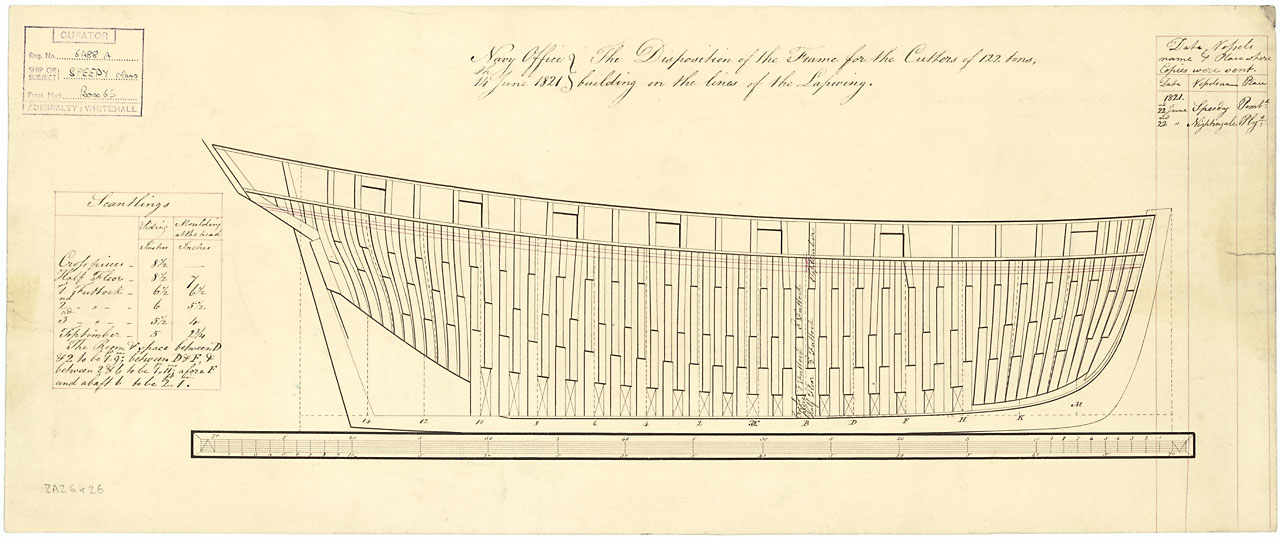 CURATOR
Reg. No. 6488 A
SHIP OR SUBJECT SPEEDY class
Press Mark Box 65
ADMIRALTY: WHITEHALL
Navy Office } The Disposition of the Frame for the Cutters of 122 tons,
14th June 1821 } building on the lines of the Lapwing.
Date, Vessels
name & Place where
Copies were sent.
Date Vessels name Place
1821.
22nd June Speedy Pembke
22nd " Nightingale Plyo
Scantlings
Siding Moulding at the head
Inches Inches
Cross pieces - 8½ —
Half Floor - 8½ 7
1st Futtock - 6½ 6½
2nd - " - 6 5½
3rd - " - 5½ 4
Toptimber - 5 2¾
The Room & space between D
& 2 to be 1.9; between D & F, &
between 2 & 6 to be 1.11; afore F
and abaft 6 to be 2.1.
14 12 10 8 6 4 2 B D F H K M
70 60 50 40 30 20 10
ZAZ6426